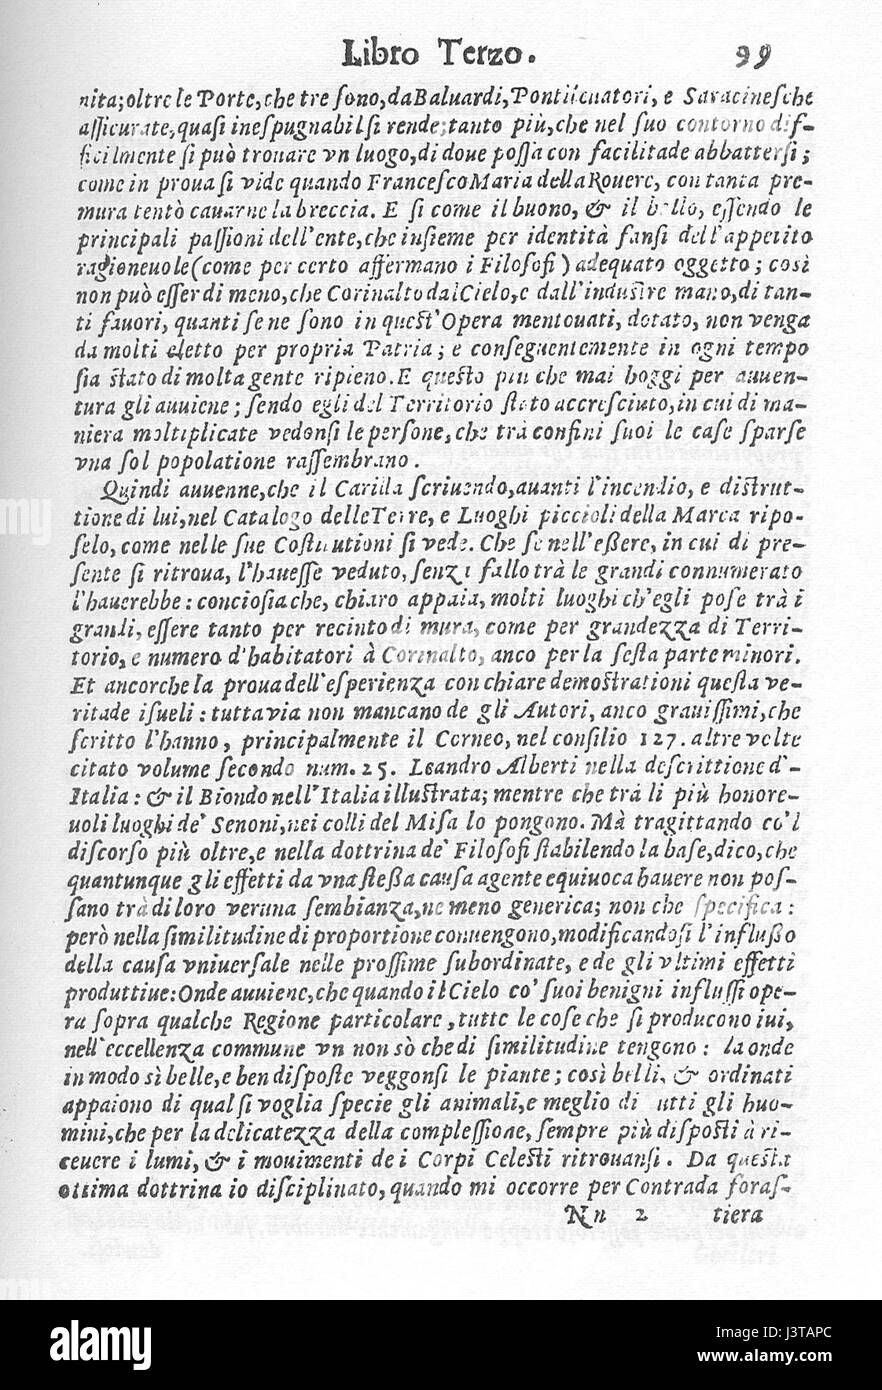 Libro Terzo. 99
nita; oltre le Porte, che tre sono, da Baluardi, Pontileuatori, e Saracinesche
assicurate, quasi inespugnabil si rende; tanto più, che nel suo contorno dif-
ficilmente si può trouare vn luogo, di doue possa con facilitade abbattersi;
come in proua si vide quando Francesco Maria della Rouere, con tanta pre-
mura tentò cauarne la breccia. E si come il buono, & il bello, essendo le
principali passioni dell'ente, che insieme per identità fansi dell'appetito
ragioneuole (come per certo affermano i Filosofi) adequato oggetto; così
non può esser di meno, che Corinalto dal Cielo, e dall'industre mano, di tan-
ti fauori, quanti se ne sono in quest'Opera mentouati, dotato, non venga
da molti eletto per propria Patria; e conseguentemente in ogni tempo
sia stato di molta gente ripieno. E questo piu che mai hoggi per auuen-
tura gli auuiene; sendo egli del Territorio stato accresciuto, in cui di ma-
niera moltiplicate vedonsi le persone, che trà confini suoi le case sparse
vna sol popolatione rassembrano.
Quindi auuenne, che il Carilla scriuendo, auanti l'incendio, e distrut-
tione di lui, nel Catalogo delle Terre, e Luoghi piccioli della Marca ripo-
selo, come nelle sue Costitutioni si vede. Che se nell'essere, in cui di pre-
sente si ritroua, l'hauesse veduto, senza fallo trà le grandi connumerato
l'hauerebbe: conciosiache, chiaro appaia, molti luoghi ch'egli pose trà i
grandi, essere tanto per recinto di mura, come per grandezza di Terri-
torio, e numero d'habitatori à Corinalto, anco per la sesta parte minori.
Et ancorche la proua dell'esperienza con chiare demostrationi questa ve-
ritade isueli: tuttavia non mancano de gli Autori, anco grauissimi, che
scritto l'hanno, principalmente il Corneo, nel consilio 127. altre volte
citato volume secondo num. 25. Leandro Alberti nella descrittione d'-
Italia: & il Biondo nell'Italia illustrata; mentre che trà li più honore-
uoli luoghi de' Senoni, nei colli del Misa lo pongono. Mà tragittando co'l
discorso più oltre, e nella dottrina de' Filosofi stabilendo la base, dico, che
quantunque gli effetti da vna stessa causa agente equiuoca hauere non pos-
sano trà di loro veruna sembianza, ne meno generica; non che specifica:
però nella similitudine di proportione conuengono, modificandosi l'influsso
della causa vniuersale nelle prossime subordinate, e de gli vltimi effetti
produttiue: Onde auuiene, che quando il Cielo co' suoi benigni influssi ope-
ra sopra qualche Regione particolare, tutte le cose che si producono iui,
nell'eccellenza commune vn non sò che di similitudine tengono: la onde
in modo sì belle, e ben disposte veggonsi le piante; così belli, & ordinati
appaiono di qual si voglia specie gli animali, e meglio di tutti gli huo-
mini, che per la delicatezza della complessione, sempre più disposti à ri-
ceuere i lumi, & i mouimenti de i Corpi Celesti ritrouansi. Da questa
ottima dottrina io disciplinato, quando mi occorre per Contrada foras-
Nn 2 tiera
alamy
Image ID: J3TAPC
www.alamy.com